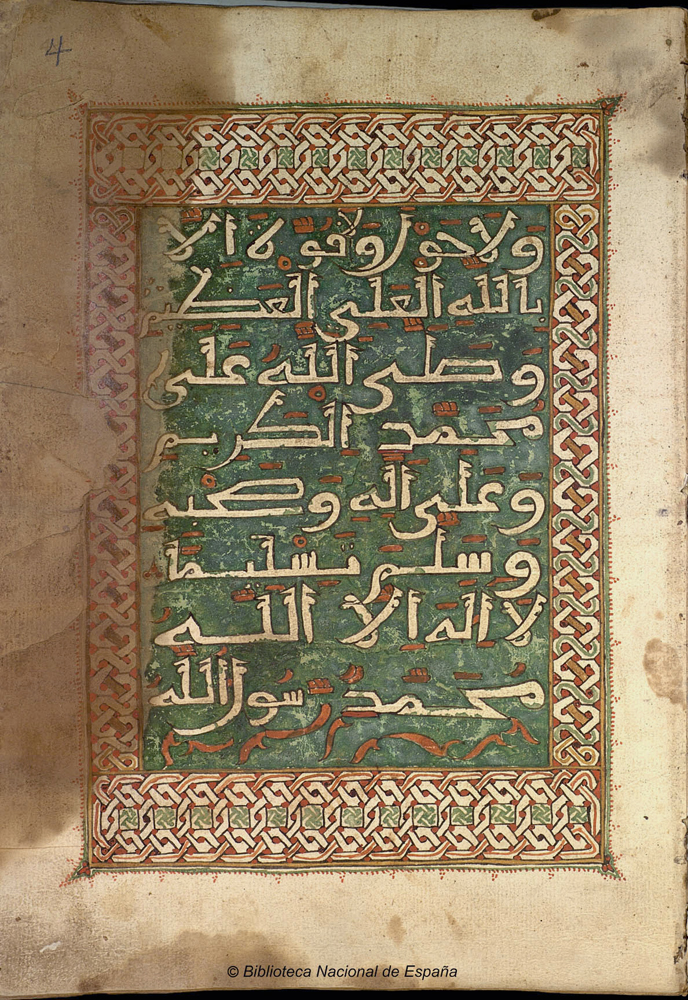 4
ولا حول ولا قوة إلا
بالله العلي العظيم
وصلى الله على
محمد الكريم
وعلى آله وصحبه
وسلم تسليما
لا إله إلا الله
محمد رسول الله
© Biblioteca Nacional de España